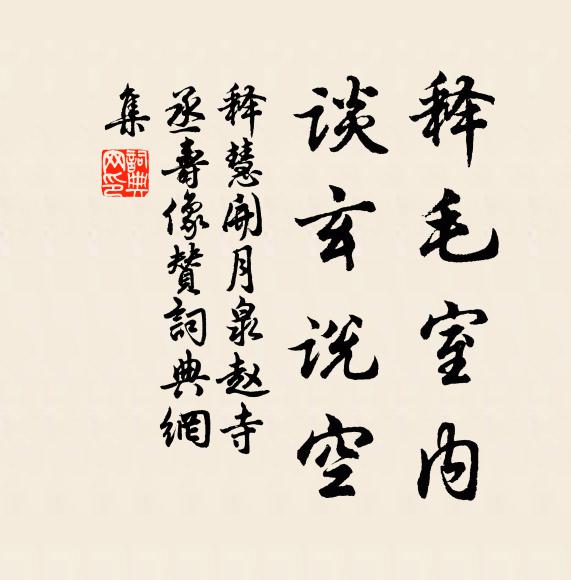 释毛室内
谈玄说空
释慧開月泉赵寺
丞壽像赞詞典網
集
詞典网印